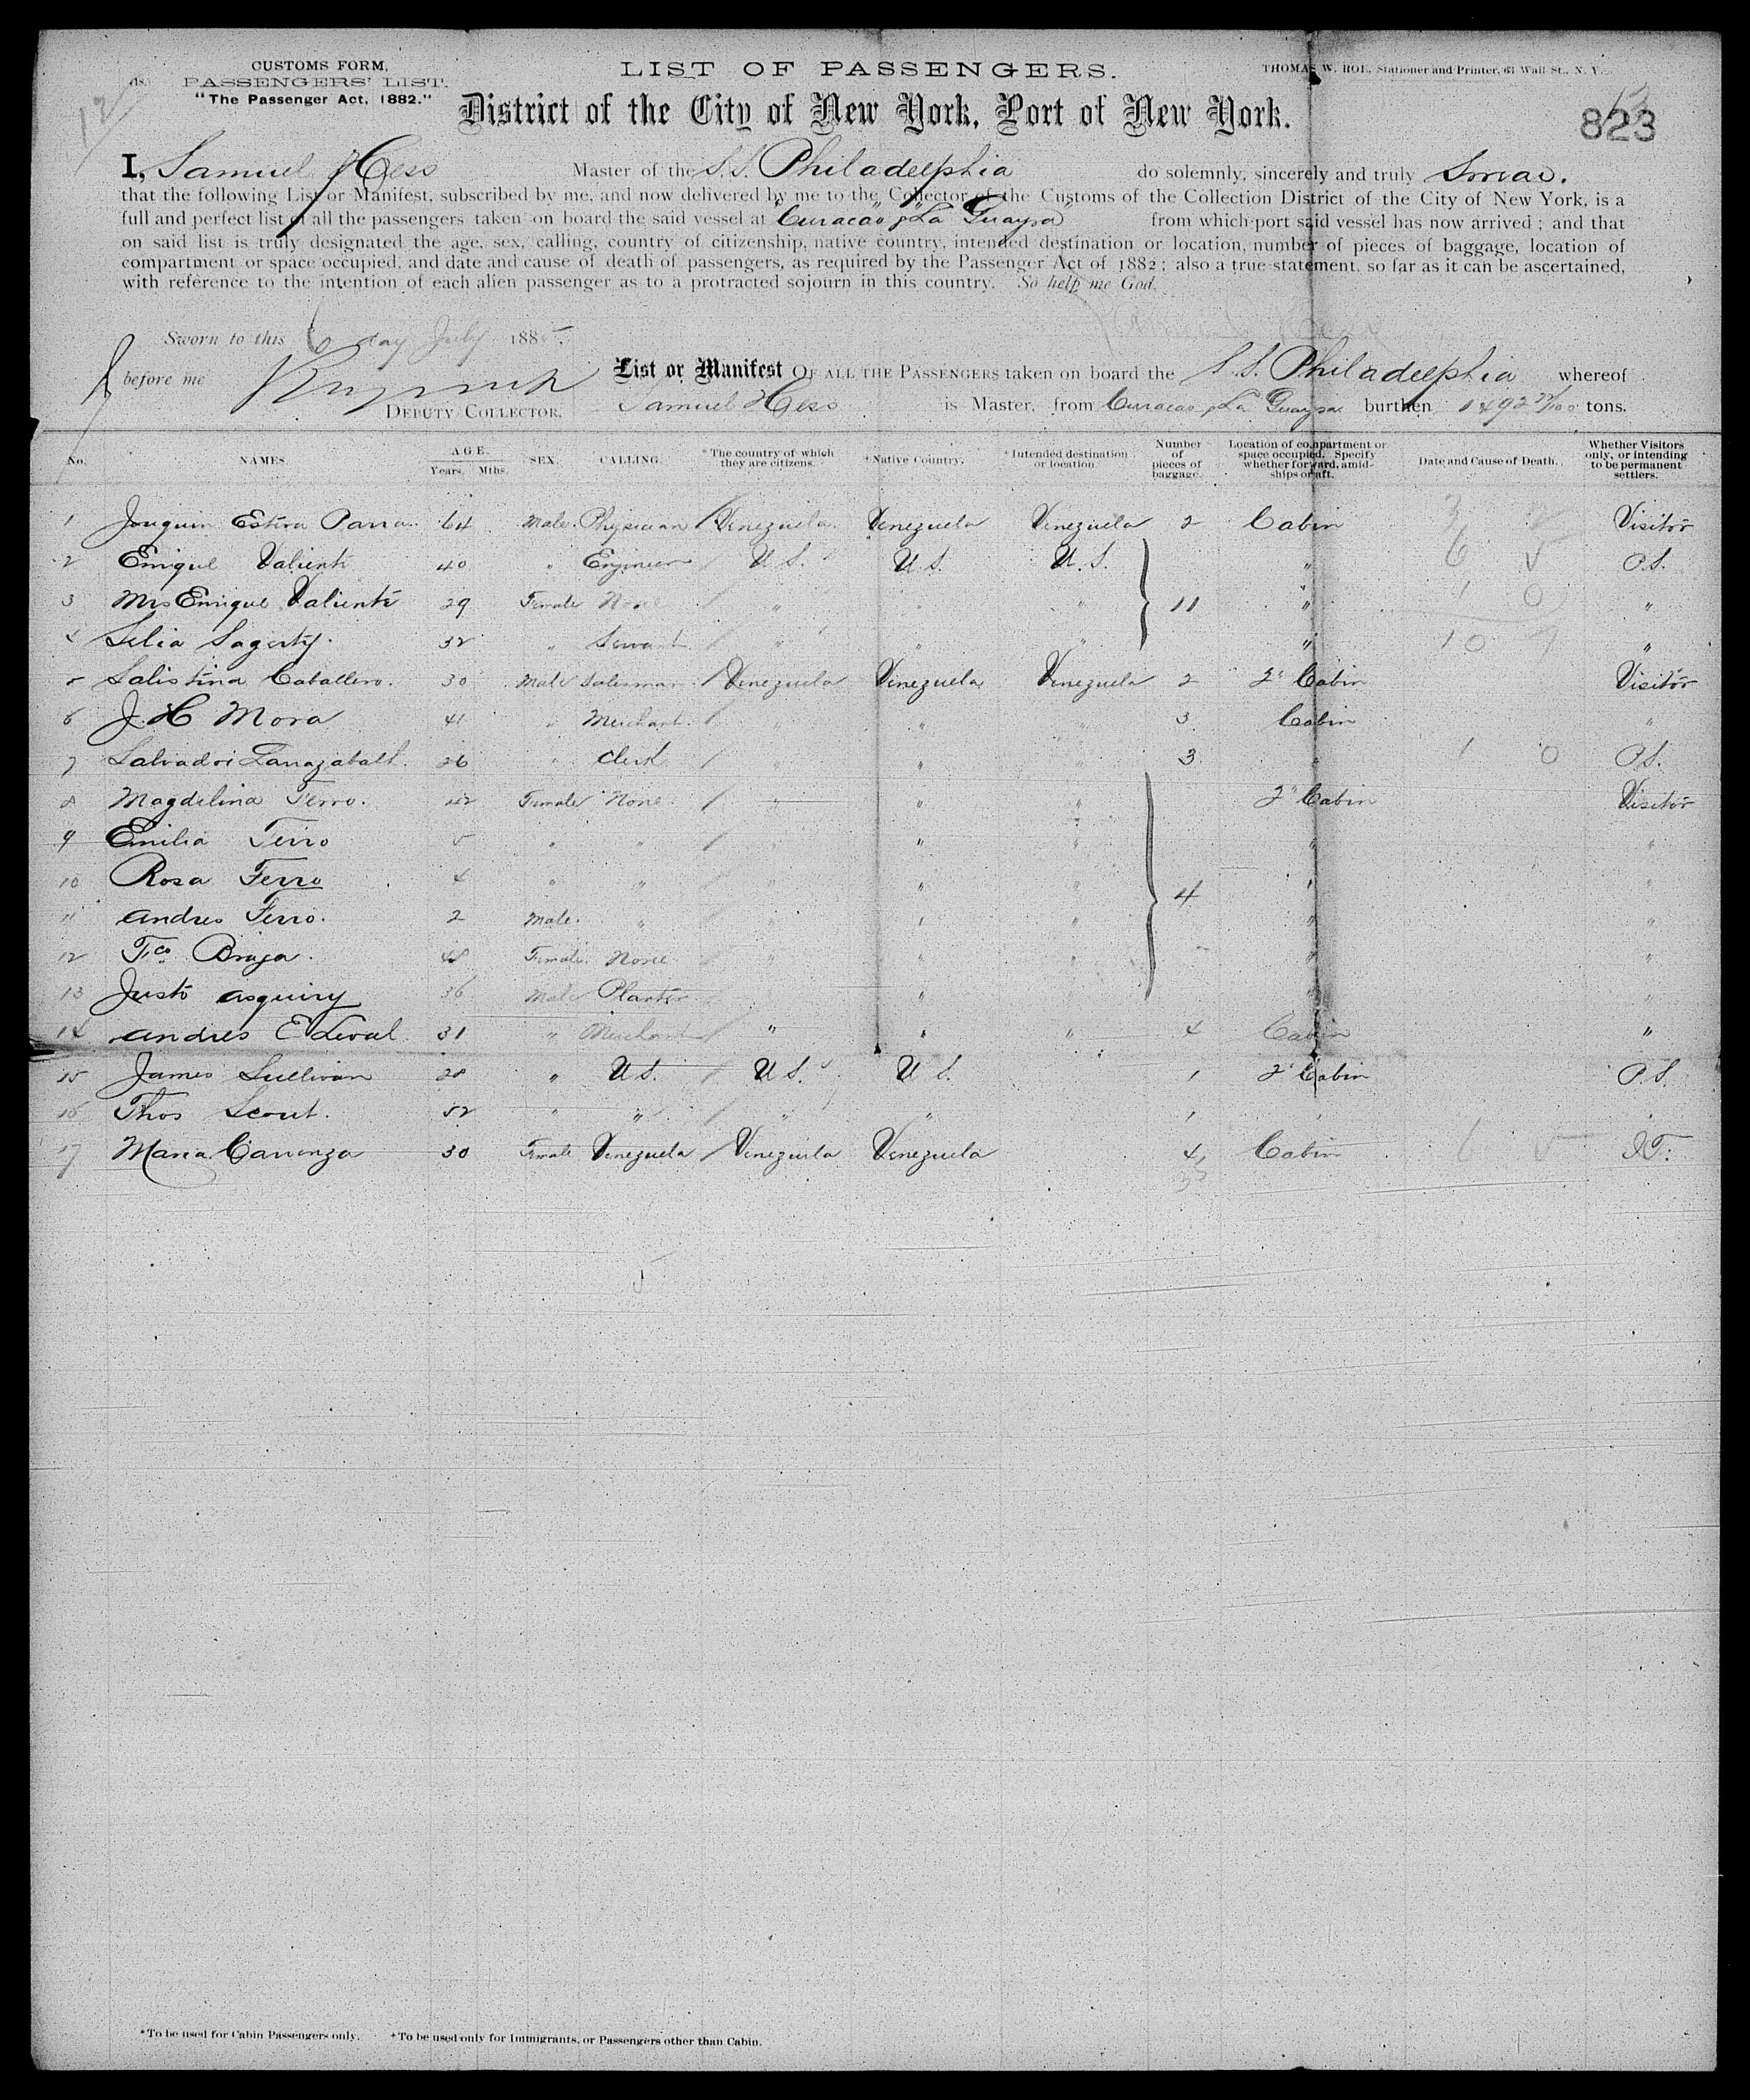 CUSTOMS FORM,
PASSENGERS' LIST.
"The Passenger Act, 1882."
LIST OF PASSENGERS.
THOMAS W. ROE, Stationer and Printer, 63 Wall St., N. Y.
District of the City of New York, Port of New York.
823
I, Samuel Hess Master of the S.S. Philadelphia do solemnly, sincerely and truly Swear.
that the following List or Manifest, subscribed by me, and now delivered by me to the Collector of the Customs of the Collection District of the City of New York, is a
full and perfect list of all the passengers taken on board the said vessel at Curacao & La Guayra from which port said vessel has now arrived; and that
on said list is truly designated the age, sex, calling, country of citizenship, native country, intended destination or location, number of pieces of baggage, location of
compartment or space occupied, and date and cause of death of passengers, as required by the Passenger Act of 1882; also a true statement, so far as it can be ascertained,
with reference to the intention of each alien passenger as to a protracted sojourn in this country. So help me God.
Sworn to this 6 day July 1885.
before me
DEPUTY COLLECTOR.
List or Manifest OF ALL THE PASSENGERS taken on board the S.S. Philadelphia whereof
Samuel Hess is Master, from Curacao & La Guayra burthen 1492 tons.
No. NAMES. AGE. Years. Mths. SEX. CALLING. *The country of which they are citizens. +Native Country. +Intended destination or location. Number of pieces of baggage. Location of compartment or space occupied. Specify whether forward, amidships or aft. Date and Cause of Death. Whether Visitors only, or intending to be permanent settlers.
1 Joaquin Parra 64 Male. Physician Venezuela Venezuela Venezuela 2 Cabin Visitor
2 Enrique Valiente 40 " Engineer U.S. U.S. U.S. " P.S.
3 Mrs Enrique Valiente 29 Female None " " 11 " "
4 32 " Servant " " " " "
5 Caballero. 30 Male Salesman Venezuela Venezuela Venezuela 2 2d Cabin Visitor
6 J. H Mora 41 " Merchant " " " 3 Cabin "
7 Salvador 26 " Clerk " " " 3 " P.S.
8 Magdelina Ferro. 42 Female None " " " 2d Cabin Visitor
9 Emilia Ferro 5 " " " " " " "
10 Rosa Ferro 4 " " " " " 4 " "
11 Andres Ferro. 2 Male. " " " " " "
12 Fco 48 Female. None " " " " "
13 Justo 36 Male Planter " " "
14 Andres E 31 " Merchant " " " 4 Cabin "
15 James Sullivan 28 " U.S. U.S. U.S. 1 2d Cabin P.S.
16 Thos Scout. 52 " " " " 1 " "
17 Maria Carranza 30 Female Venezuela Venezuela Venezuela 4 Cabin
*To be used for Cabin Passengers only. +To be used only for Immigrants, or Passengers other than Cabin.